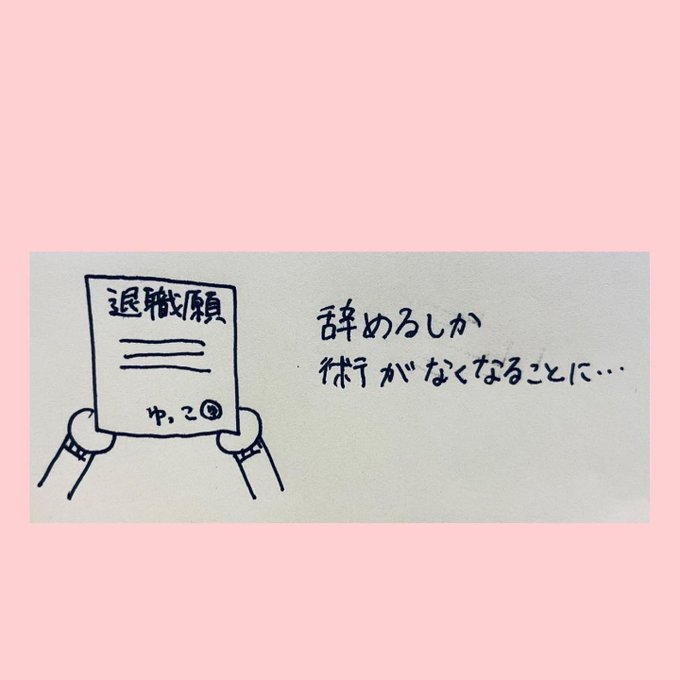 退職願
ゆっこ
辞めるしか
術がなくなることに…